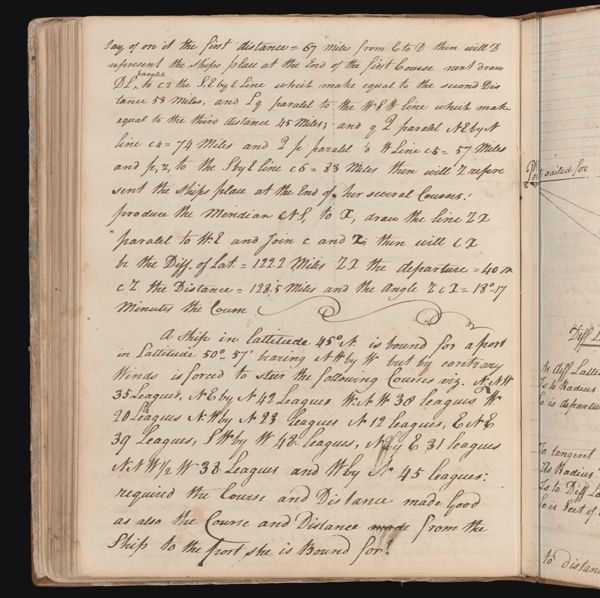 Lay of on it the first distance = 67 Miles from C to D then will D
represent the Ships place at the End of the first Course next draw
DL parallel to c2 the S.E by E Line which make equal to the second Dis
tance 53 Miles, and Lg paralel to the W S W Line which make
equal to the third distance 45 Miles; and g Q paralel N E by N
line c4 = 74 Miles and Q p paralel to W Line c5 = 57 Miles
and p, z, to the S by E line c6 = 38 Miles then will Z repre
sent the Ships place at the End of her several Courses:
produce the Meridian c N S, to X, draw the line Z X
paralel to W: E and Join c and Z; then will c X
be the Diff. of Lat. = 122.2 Miles Z X the departure = 40 m
c Z the Distance = 128,5 Miles and the Angle Z c X = 18°.17
Minutes the Course
A Ship in Lattitude 45° N. is bound for a port
in Lattitude 50°. 57' bearing N W by W but by contrary
Winds is forced to steer the following Courses viz. N.N W
35 Leagues, N E by N 42 Leagues W. N W 38 leagues W
20 Leagues N. W by N 23 leagues N 12 leagues, E N E
39 Leagues, S W by W 48 leagues, N by E 31 leagues
N. N W ½ W 33 Leagues and W by N 45 leagues:
required the Course and Distance made Good
as also the Course and Distance made from the
Ship to the port she is Bound for?
sailed for
Diff L
As diff Latti
Is to Radius
So is departu
To tangent
As Radius
Is to Diff La
So is Sect of
to distan